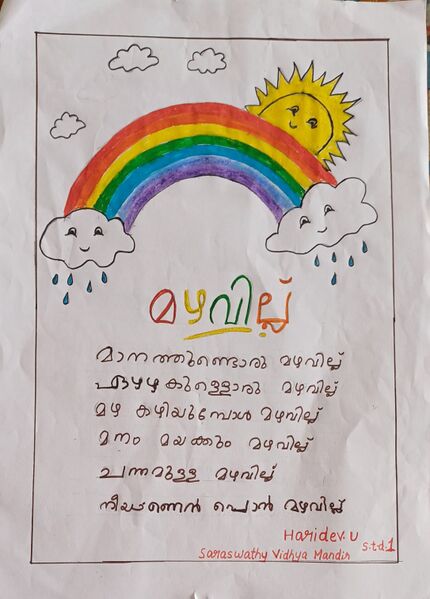 മഴവില്ല്
മാനത്തുണ്ടൊരു മഴവില്ല്
ഏഴഴകുള്ളൊരു മഴവില്ല്
മഴ കഴിയുമ്പോൾ മഴവില്ല്
മനം മയക്കും മഴവില്ല്
ചന്തമുള്ള മഴവില്ല്
നീയാണെൻ പൊൻ മഴവില്ല്
Haridev. U
S.t.d. 1
Saraswathy Vidhya Mandir